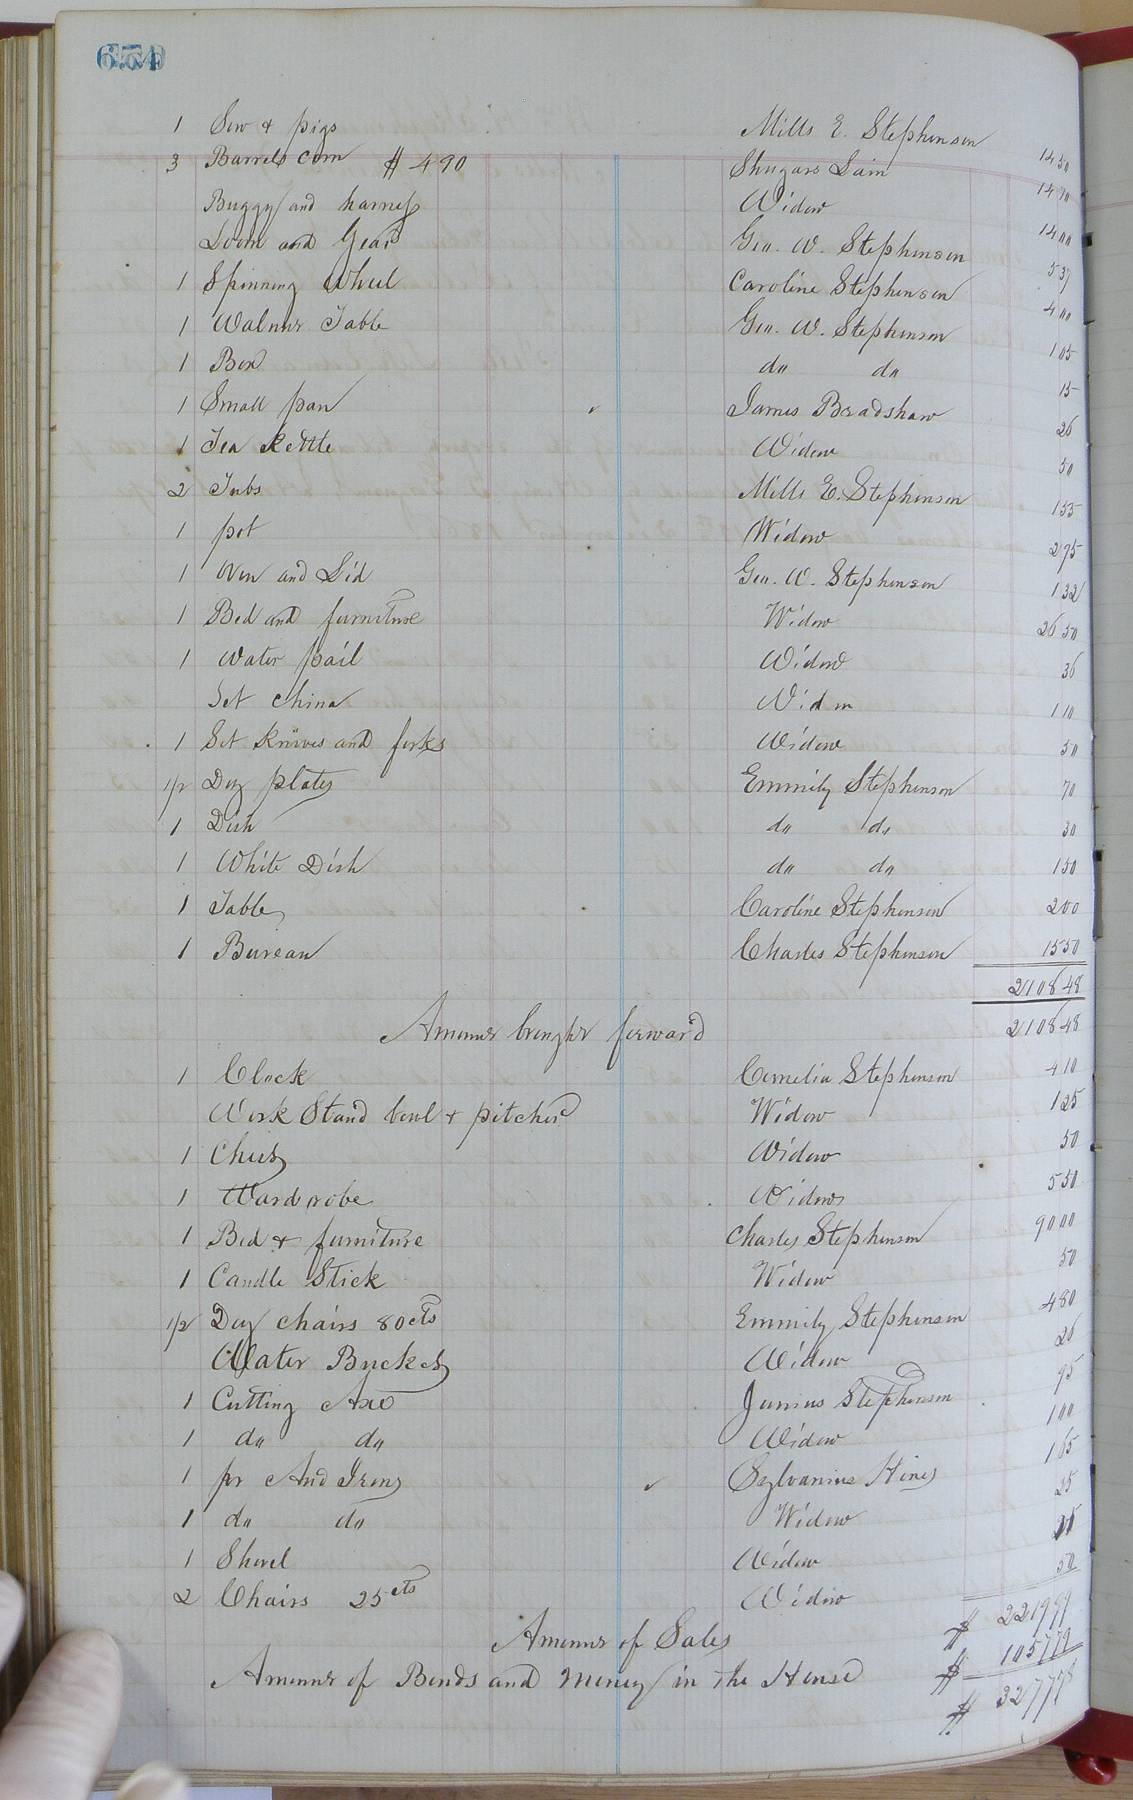 1 Sow & pigs Mills E. Stephenson 14 50
3 Barrels corn $4 90 Shugars Lain 14 70
Buggy and harness Widow 14 00
Loom and Gear Geo. W. Stephenson 5 37
1 Spinning Wheel Caroline Stephenson 4 00
1 Walnut Table Geo. W. Stephenson 1 05
1 Box do do 15
1 Small pan James Bradshaw 26
1 Tea Kettle Widow 50
2 Tubs Mills E. Stephenson 1 55
1 pot Widow 2 75
1 Oven and Lid Geo. W. Stephenson 1 32
1 Bed and furniture Widow 26 50
1 Water pail Widow 36
Set China Widow 1 10
1 Set Knives and forks Widow 50
1/2 Doz plates Emmily Stephenson 70
1 Dish do do 30
1 White Dish do do 1 50
1 Table Caroline Stephenson 2 00
1 Bureau Charles Stephenson 15 50
2108 48
Amount brought forward 2108 48
1 Clock Cornelia Stephenson 4 10
Work Stand bowl & pitcher Widow 1 25
1 Chest Widow 50
1 Wardrobe Widow 5 50
1 Bed & furniture Charles Stephenson 90 00
1 Candle Stick Widow 50
1/2 Doz chairs 80cts Emmily Stephenson 4 80
Water Bucket Widow 26
1 Cutting Axe Junius Stephenson 95
1 do do Widow 1 00
1 pr And Irons Sylvanius Hines 1 65
1 do do Widow 25
1 Shovel Widow
2 Chairs 25cts Widow 50
Amount of Sales $ 2219 99
Amount of Bonds and Money in the House $ 1057 79
$ 3277 78